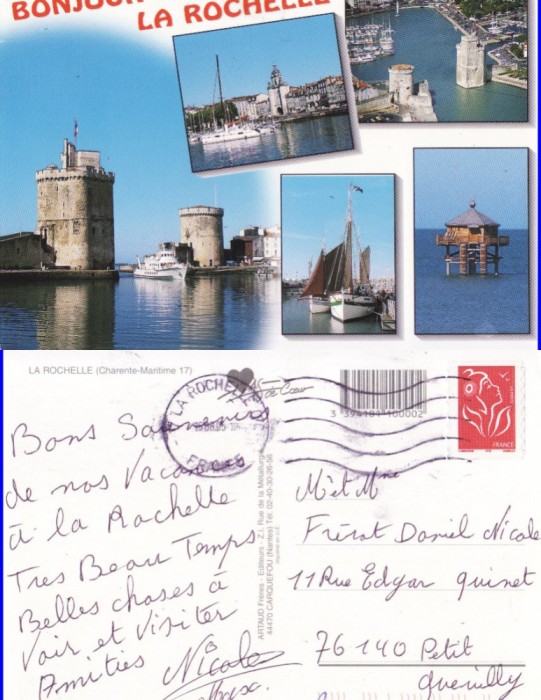 BONJOUR
LA ROCHELLE
LA ROCHELLE (Charente-Maritime 17)
LA ROCHELLE
de Cœur
3 394181 100002
FRANCE
Bons Souvenirs
de nos Vacances
à la Rochelle
Tres Beau Temps
Belles choses à
Voir et Visiter
Amitiés Nicole
ARTAUD Frères - Editeurs - Z.I. Rue de la Métallurgie
44470 CARQUEFOU (Nantes) Tél. 02-40-30-26-56
Mr et Mme
Frérot Daniel Nicole
11 Rue Edgar quinet
76140 Petit
quevilly